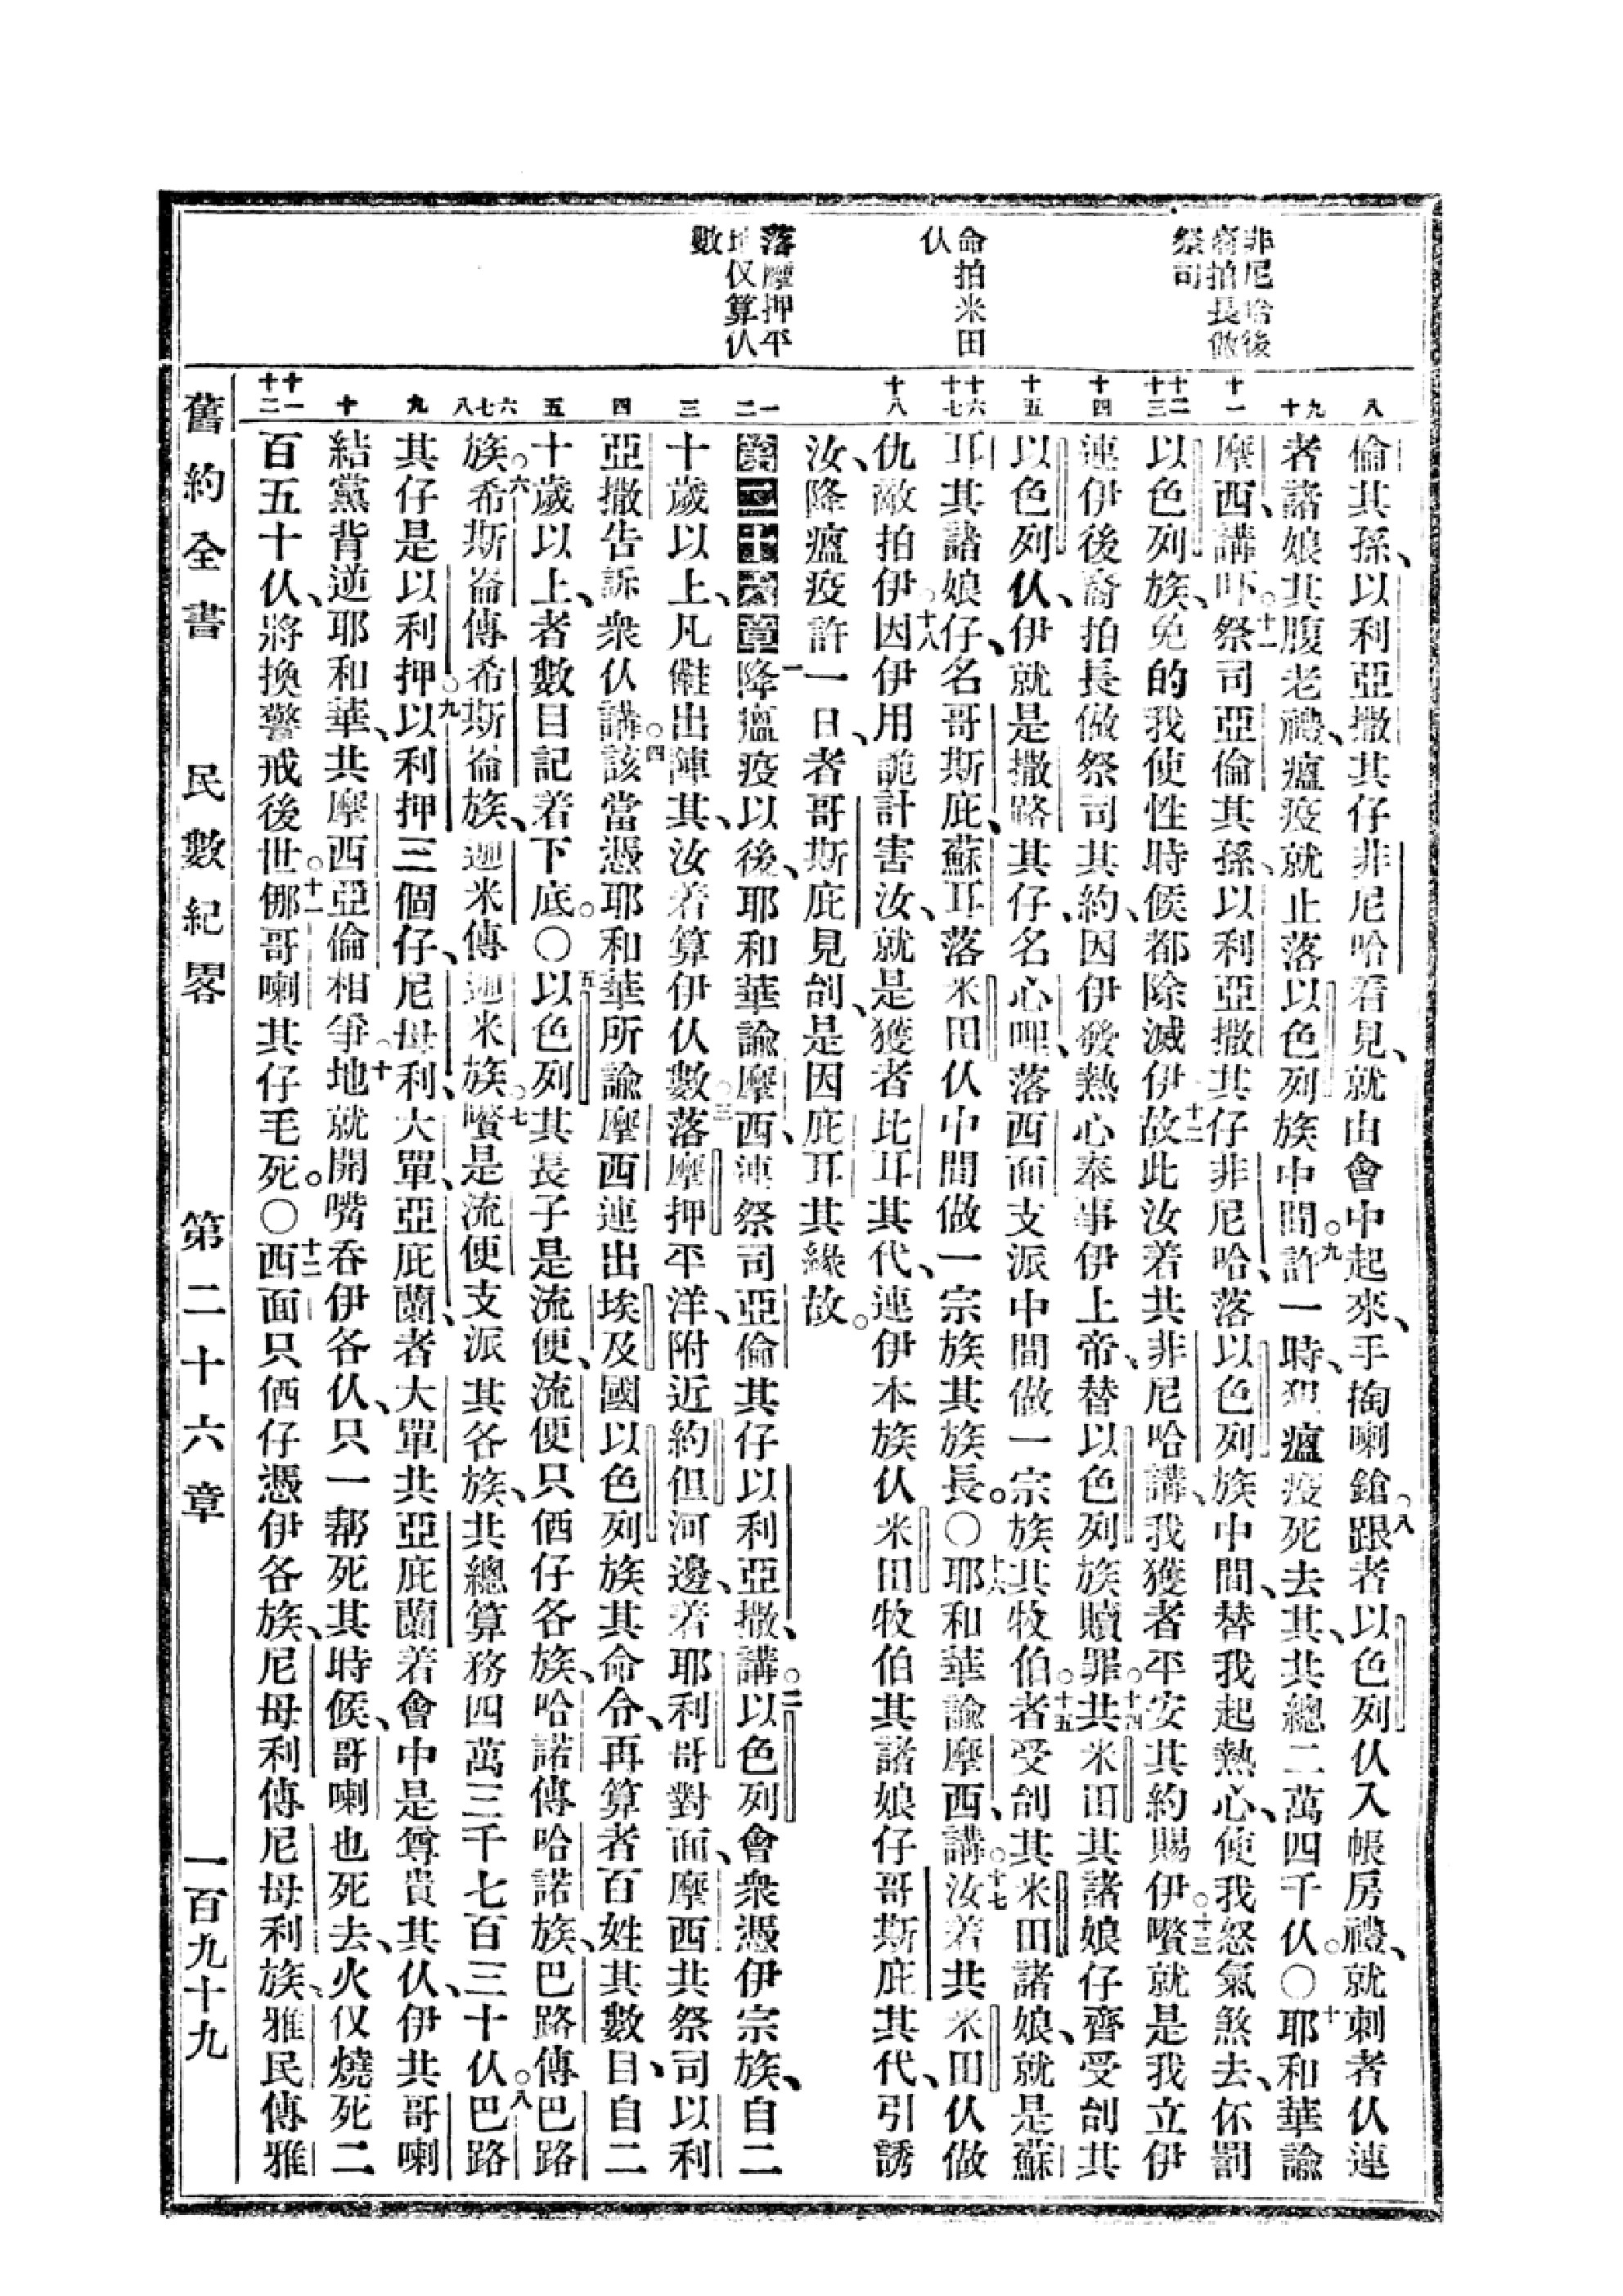 非尼哈後
裔拍長做
祭司
命拍米田
仫
落摩押平
地仅算仫
數
倫其孫、以利亞撒其仔非尼哈看見、就由會中起來、手掏喇鎗。八跟者以色列仫入帳房禮、就刺者仫連
者諸娘其腹老禮、瘟疫就止落以色列族中間。九許一時、犯瘟疫死去其、共總二萬四千仫。〇十耶和華諭
摩西、講吓。十一祭司亞倫其孫、以利亞撒其仔非尼哈、落以色列族中間、替我起熱心、使我怒氣煞去、伓罰
以色列族、免的我使性時候、都除滅伊。十二故此汝著共非尼哈講、我獲者平安其約賜伊。十三嚽就是我立伊
連伊後裔拍長做祭司其約、因伊發熱心奉事伊上帝、替以色列族贖罪。十四共米田其諸娘仔齊受刣其
以色列仫、伊就是撒路其仔、名心哩、落西面支派中間做一宗族其牧伯。十五者受刣其米田諸娘、就是蘇
耳其諸娘仔、名哥斯庇、蘇耳落米田仫中間做一宗族其族長。〇十六耶和華諭摩西、講。十七汝若共米田仫做
仇敵拍伊。十八因伊用詭計害汝、就是獲者比耳其代、連伊本族仫米田牧伯其諸娘仔哥斯庇其代、引誘
汝、降瘟疫許一日、者哥斯庇見刣、是因庇耳其緣故。
第二十六章一降瘟疫以後、耶和華諭摩西、連祭司亞倫其仔以利亞撒、講。二以色列會衆憑伊宗族、自二
十歲以上、凡儺出陣其、汝著算伊仫數。三落摩押平洋、附近約但河邊、若耶利哥對面、摩西共祭司以利
亞撒告訴衆仫講。四該當憑耶和華所諭摩西連出埃及國以色列族其命令、再算者百姓其數目、自二
十歲以上、者數目記着下底。〇五以色列其長子是流便、流便只㑚仔各族、哈諾傳哈諾族、巴路傳巴路
族。六希斯崙傳希斯崙族、迦米傳迦米族。七嚽是流便支派其各族、共總算務四萬三千七百三十仫。八巴路
其仔是以利押。九以利押三個仔、尼母利、大單、亞庇蘭、者大單共亞庇蘭着會中是尊貴其仫、伊共哥喇
結黨背逆耶和華、共摩西亞倫相爭。十地就開嘴吞伊各仫、只一帮死其時候、哥喇也死去、火仅燒死二
百五十仫、將換警戒後世。十一倻哥喇其仔毛死。〇十二西面只㑚仔憑伊各族、尼母利傳尼母利族、雅民傳雅
舊約全書 民數紀畧 第二十六章 一百九十九